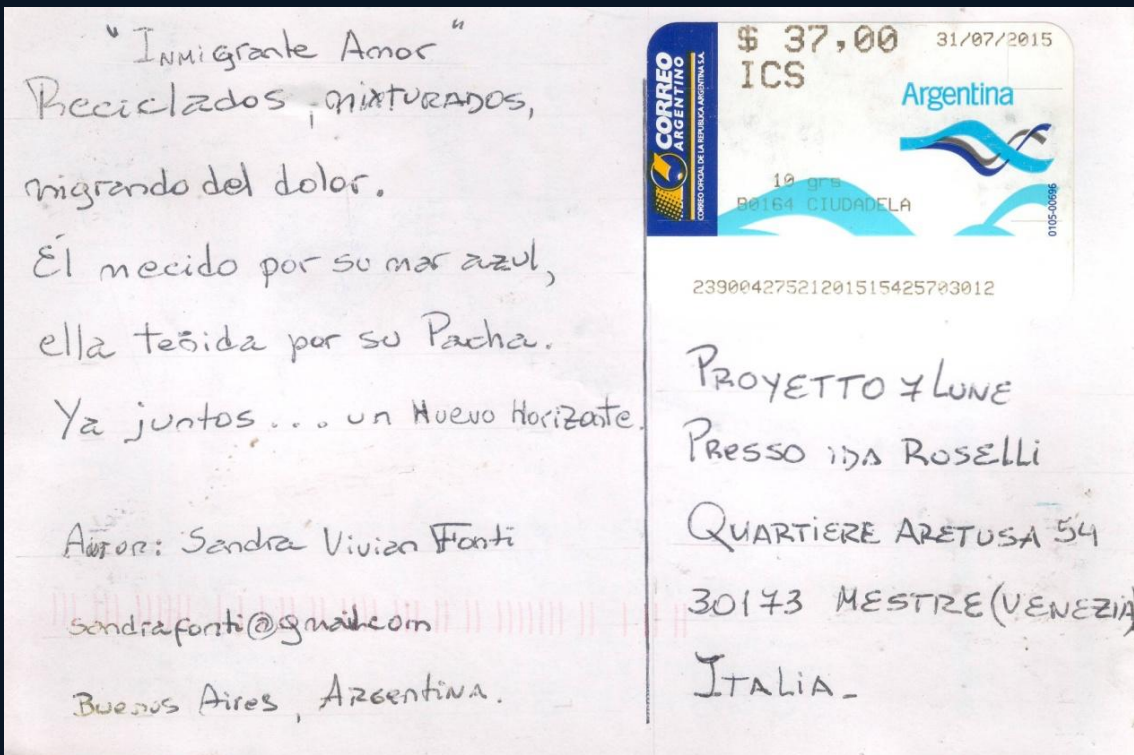 "Inmigrante Amor"
Reciclados, mixturados,
migrando del dolor.
Él mecido por su mar azul,
ella teñida por su Pacha.
Ya juntos... un Nuevo Horizonte.
Autor: Sandra Vivian Fonti
sandrafonti@gmail.com
Buenos Aires, Argentina.
CORREO
ARGENTINO
CORREO OFICIAL DE LA REPUBLICA ARGENTINA S.A.
$ 37,00 31/07/2015
ICS
Argentina
10 grs
B0164 CIUDADELA
0105-00696
23900427521201515425703012
PROYETTO 7 LUNE
PRESSO IDA ROSELLI
QUARTIERE ARETUSA 54
30173 MESTRE (VENEZIA)
ITALIA-